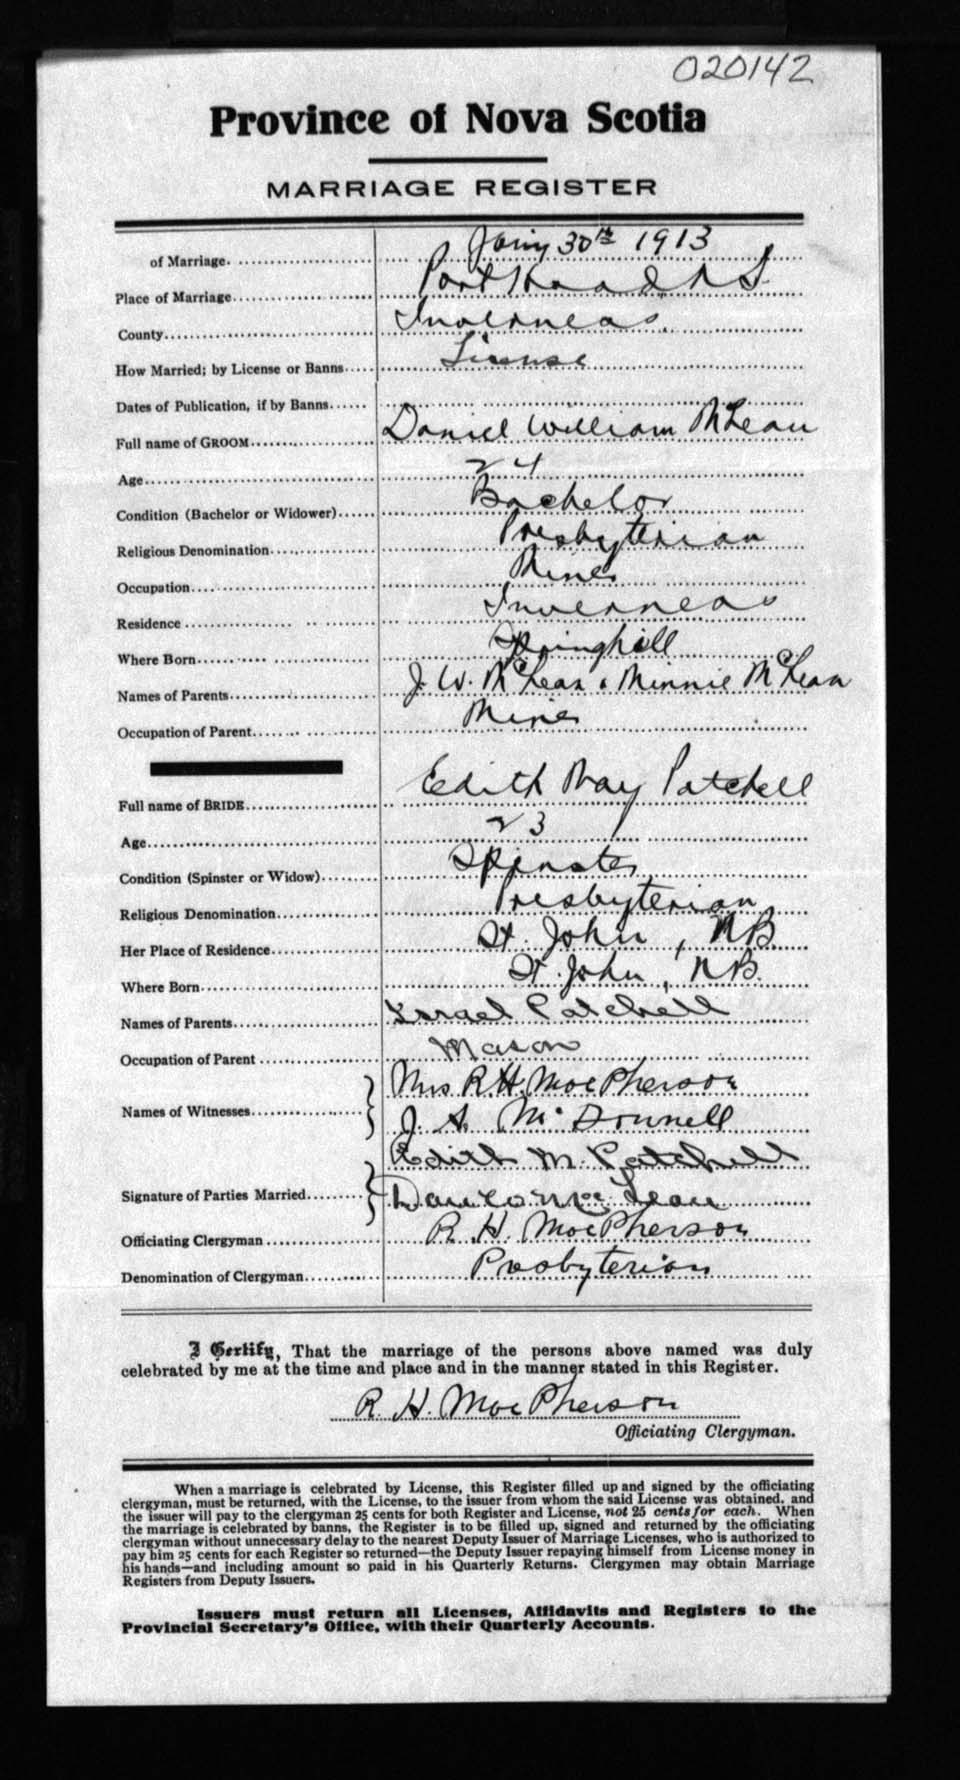 020142
Province of Nova Scotia
MARRIAGE REGISTER
of Marriage. Jany 30th 1913
Place of Marriage Port Hood N S.
County Inverness
How Married; by License or Banns License
Dates of Publication, if by Banns
Full name of GROOM Daniel William McLean
Age 24
Condition (Bachelor or Widower) Bachelor
Religious Denomination Presbyterian
Occupation Miner
Residence Inverness
Where Born Springhill
Names of Parents J. W. McLean & Minnie McLean
Occupation of Parent Miner
Full name of BRIDE Edith May Patchell
Age 23
Condition (Spinster or Widow) Spinster
Religious Denomination Presbyterian
Her Place of Residence St. John, N.B.
Where Born St. John, N.B.
Names of Parents Israel Patchell
Occupation of Parent Mason
Names of Witnesses Mrs R. H. MacPherson
J. A. McDonnell
Signature of Parties Married Edith M Patchell
Dan W McLean
Officiating Clergyman R. H. MacPherson
Denomination of Clergyman Presbyterian
I Certify, That the marriage of the persons above named was duly
celebrated by me at the time and place and in the manner stated in this Register.
R. H. MacPherson
Officiating Clergyman.
When a marriage is celebrated by License, this Register filled up and signed by the officiating
clergyman, must be returned, with the License, to the issuer from whom the said License was obtained, and
the issuer will pay to the clergyman 25 cents for both Register and License, not 25 cents for each. When
the marriage is celebrated by banns, the Register is to be filled up, signed and returned by the officiating
clergyman without unnecessary delay to the nearest Deputy Issuer of Marriage Licenses, who is authorized to
pay him 25 cents for each Register so returned—the Deputy Issuer repaying himself from License money in
his hands—and including amount so paid in his Quarterly Returns. Clergymen may obtain Marriage
Registers from Deputy Issuers.
Issuers must return all Licenses, Affidavits and Registers to the
Provincial Secretary's Office, with their Quarterly Accounts.